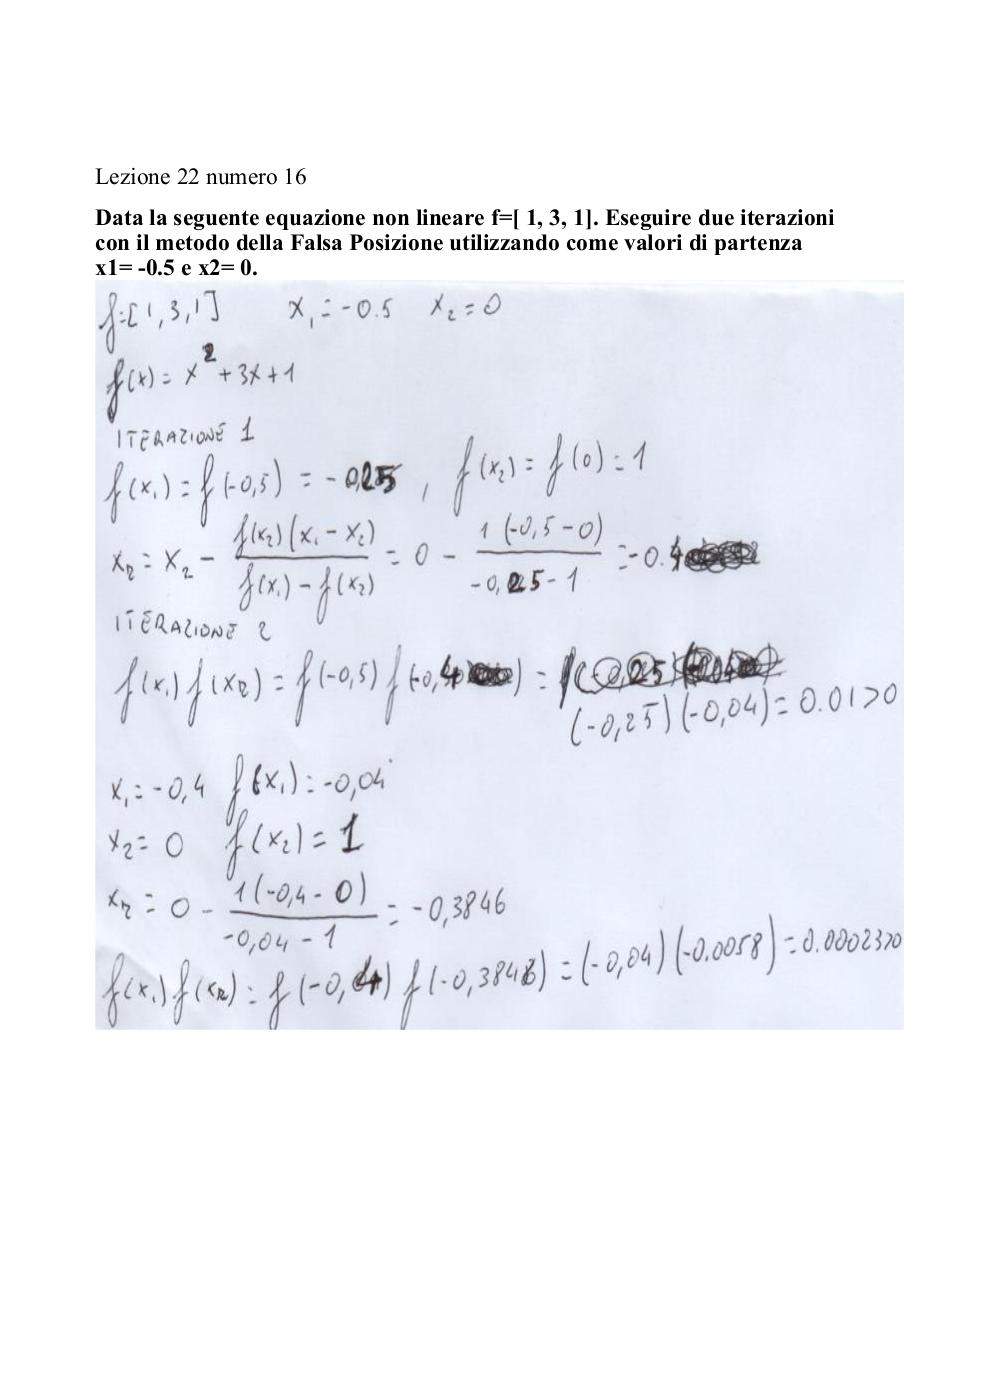 Lezione 22 numero 16
Data la seguente equazione non lineare f=[ 1, 3, 1]. Eseguire due iterazioni
con il metodo della Falsa Posizione utilizzando come valori di partenza
x1= -0.5 e x2= 0.
f=[1,3,1] x₁=-0.5 x₂=0
f(x)= x²+3x+1
ITERAZIONE 1
f(x₁)=f(-0,5) = -0,25 , f(x₂)=f(0)=1
xᵣ = x₂ - f(x₂)(x₁-x₂) / f(x₁)-f(x₂) = 0 - 1(-0,5-0) / -0,25-1 =-0.4
ITERAZIONE 2
f(x₁)f(xᵣ) = f(-0,5)f(-0,4) =
(-0,25)(-0,04)=0.01>0
x₁=-0,4 f(x₁)=-0,04
x₂=0 f(x₂)=1
xᵣ = 0 - 1(-0,4-0) / -0,04-1 = -0,3846
f(x₁)f(xᵣ)= f(-0,4) f(-0,3846) = (-0,04)(-0.0058)=0.00023>0